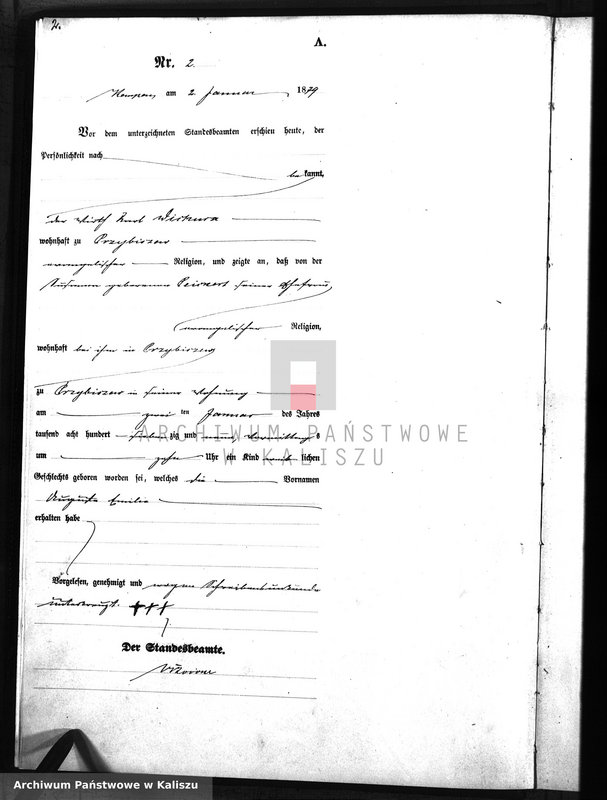 2.
A.
Nr. 2.
Kempen, am 2. Januar 1879
Vor dem unterzeichneten Standesbeamten erschien heute, der
Persönlichkeit nach
bekannt,
der Wirth Karl
wohnhaft zu
evangelischer Religion, und zeigte an, daß von der
geborenen seiner Ehefrau
evangelischer Religion,
wohnhaft bei ihm in
zu in seiner Wohnung
am zwei ten Januar des Jahres
tausend acht hundert siebenzig und neun, Vormittags
um zehn Uhr ein Kind weiblichen
Geschlechts geboren worden sei, welches die Vornamen
Auguste Emilie
erhalten habe
Vorgelesen, genehmigt und wegen Schreibensunkunde
unterkreuzt. +++
Der Standesbeamte.
ARCHIWUM PAŃSTWOWE
W KALISZU
Archiwum Państwowe w Kaliszu